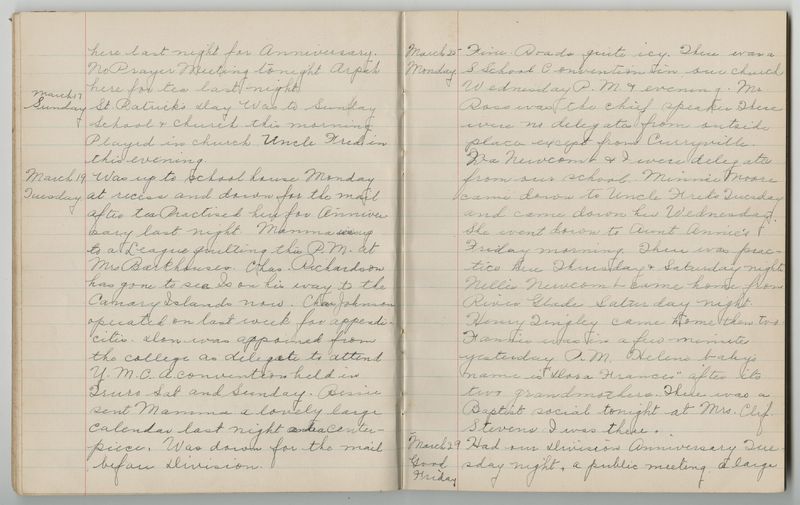 here last night for Anniversary.
No Prayer Meeting tonight Arpah
here for tea last night
March 17 St Patricks day Was to Sunday
Sunday School & Church this morning
Played in church Uncle Fred in
this evening.
March 19 Was up to School house Monday
Tuesday at recess and down for the mail
after tea Practised here for Anniver
sary last night. Mamma
to a League quilting this P.M. at
Mrs Barkhouses. Chas. Richardson
has gone to sea Is on his way to the
Canary Islands now. Chas Johnson
operated on last week for appendi-
citis. Don was appoined from
the college as delegate to attend
Y.M.C.A convention held in
Truro Sat and Sunday. Bessie
sent Mamma a lovely large
calendar last night and a center-
piece. Was down for the mail
before Division.
March 25 Fine. Roads quite icy. There was a
Monday S School Convention in our church
Wednesday P.M & evening. Mr
Ross was the chief speaker There
were no delegates from outside
places except from Curryville.
Ira Newcomb & I were delegates
from our school. Minnie Moore
came down to Uncle Freds Tuesday
and came down here Wednesday.
She went down to Aunt Annie's
Friday morning. There was prac-
tice here Thursday & Saturday night
Nellie Newcomb came home from
River Glade Saturday night.
Henry Tingley came home then too
Fannie was in a few minutes
yesterday P.M. Helens babys
name is "Dora Frances" after its
two grandmothers. There was a
Baptist social tonight at Mrs. Clif.
Stevens I was there.
March 29 Had our Division Anniversary Tue-
Good sday night, a public meeting, a large
Friday